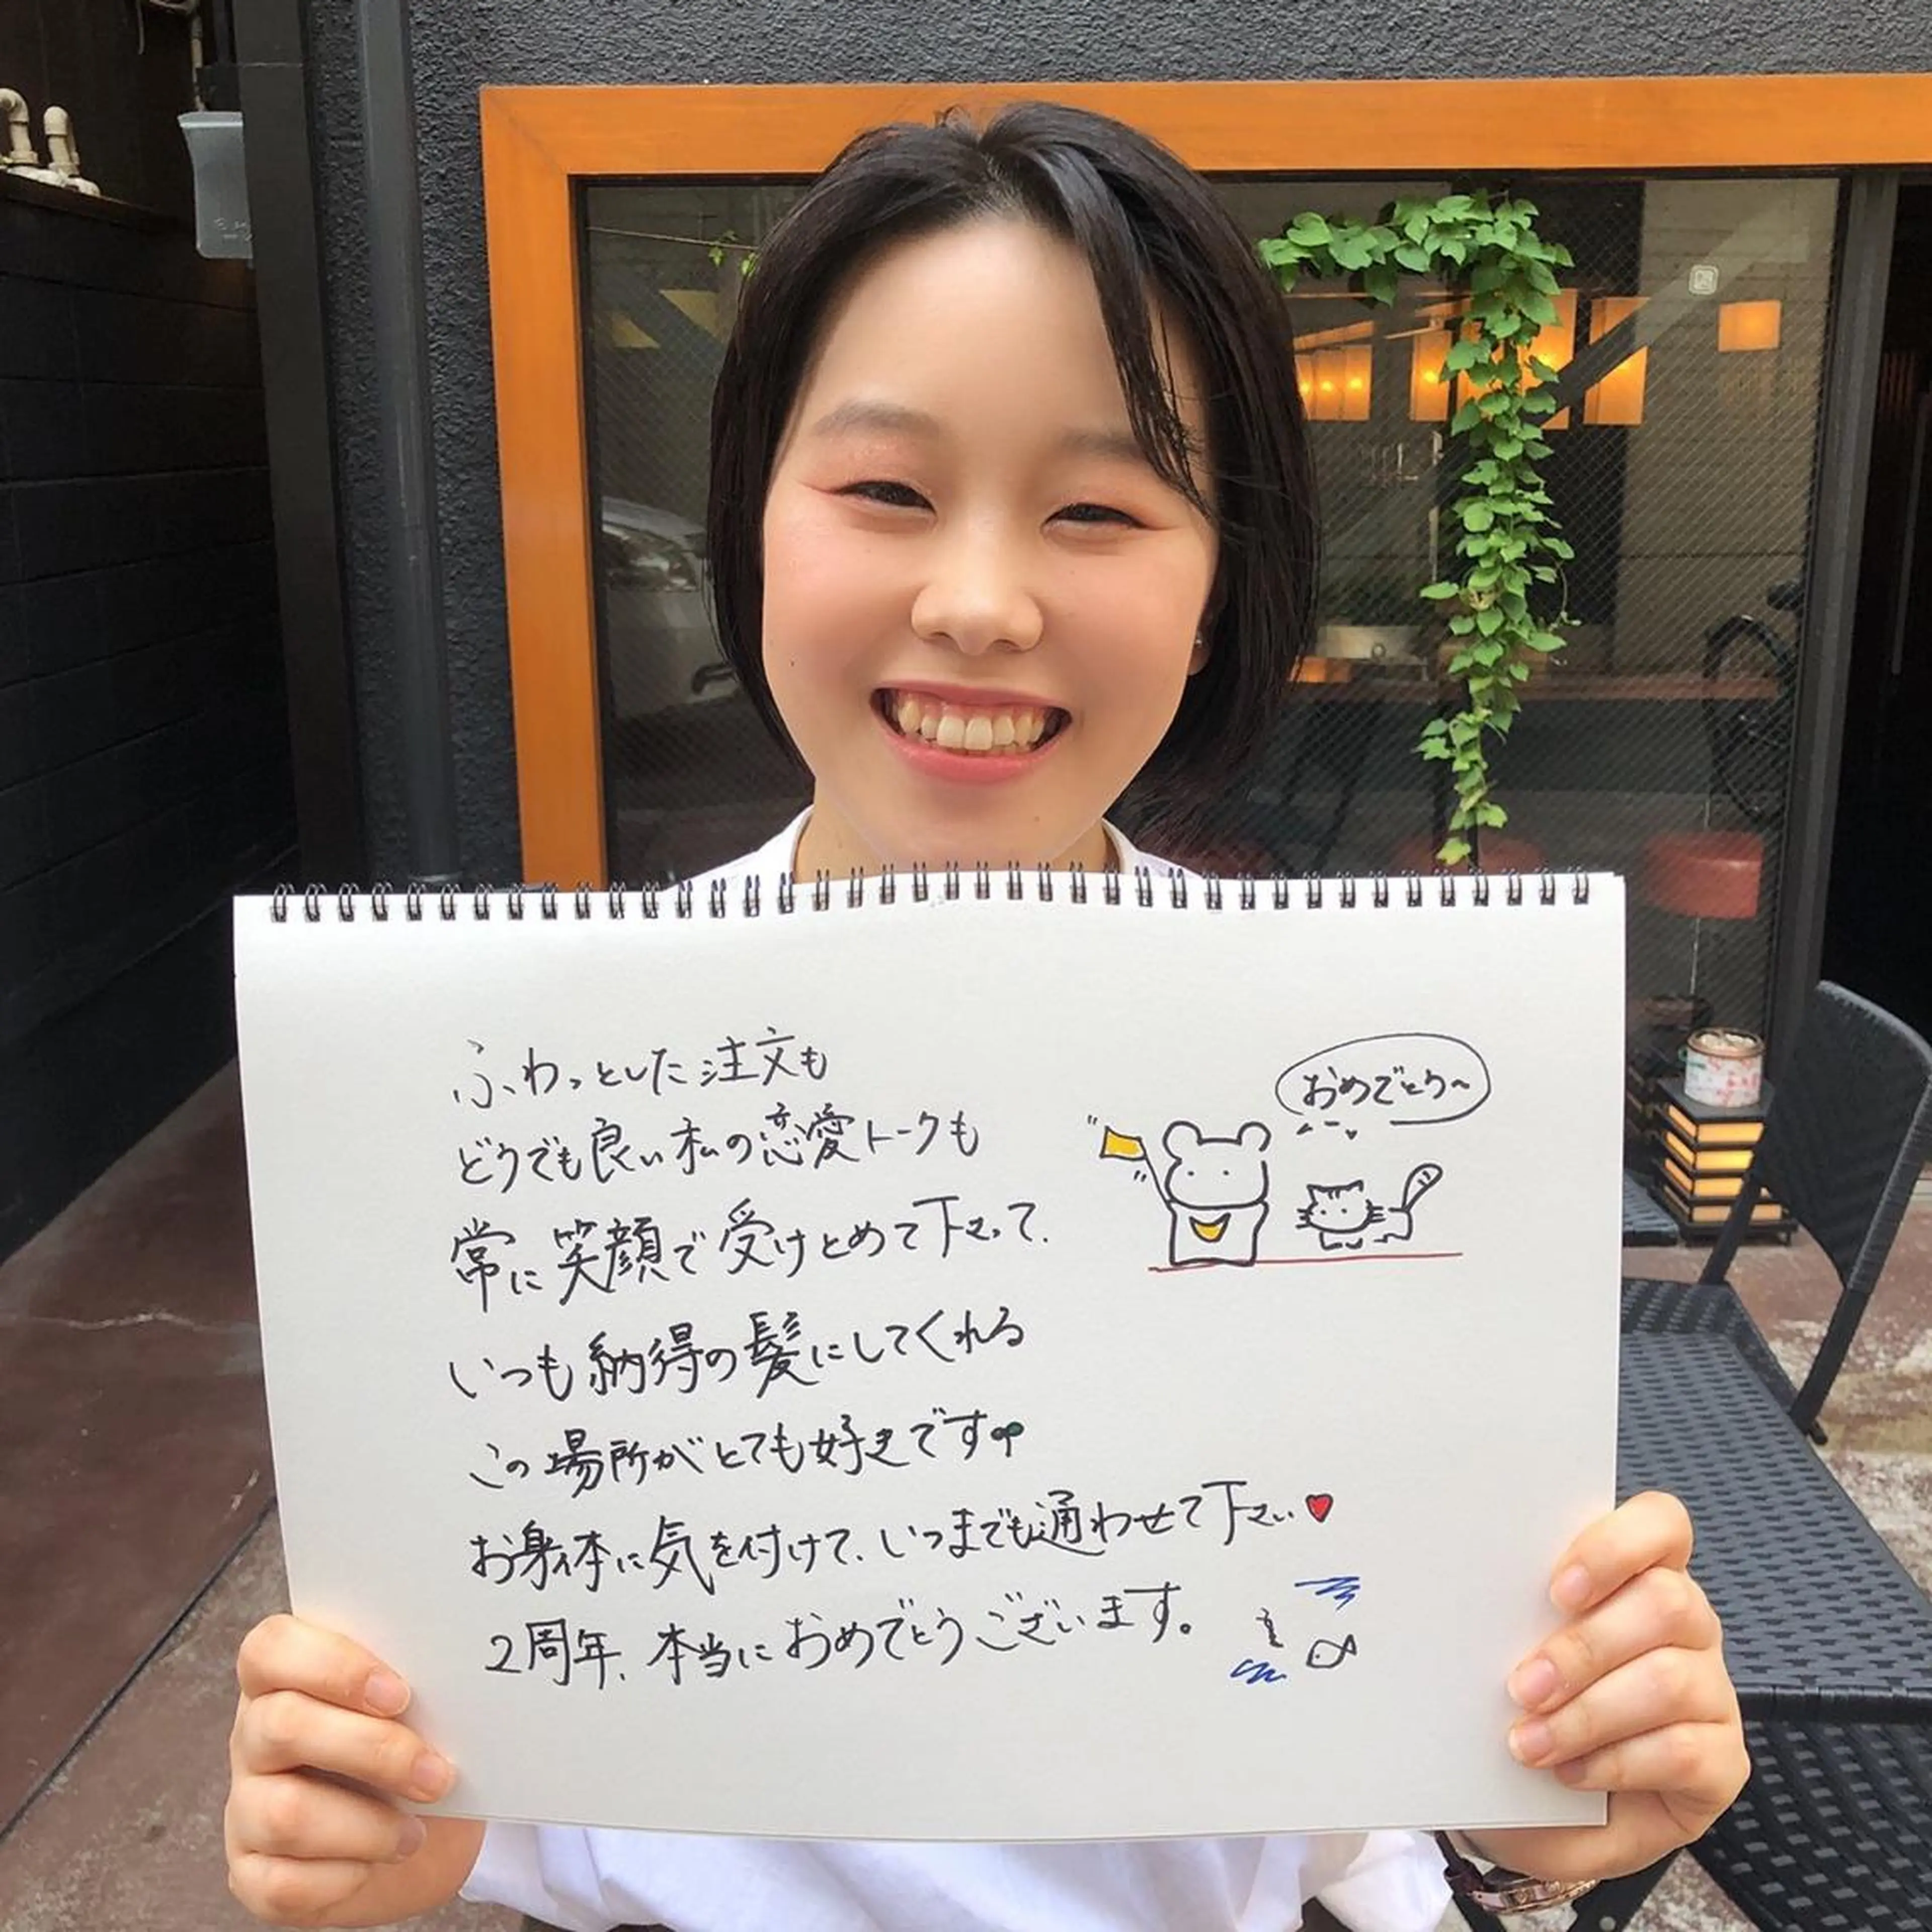 ふわっとした注文も
どうでも良い私の恋愛トークも
常に笑顔で受けとめて下さって、
いつも納得の髪にしてくれる
この場所がとても好きです
お身体に気を付けて、いつまでも通わせて下さい
2周年、本当におめでとうございます。
おめでとう〜